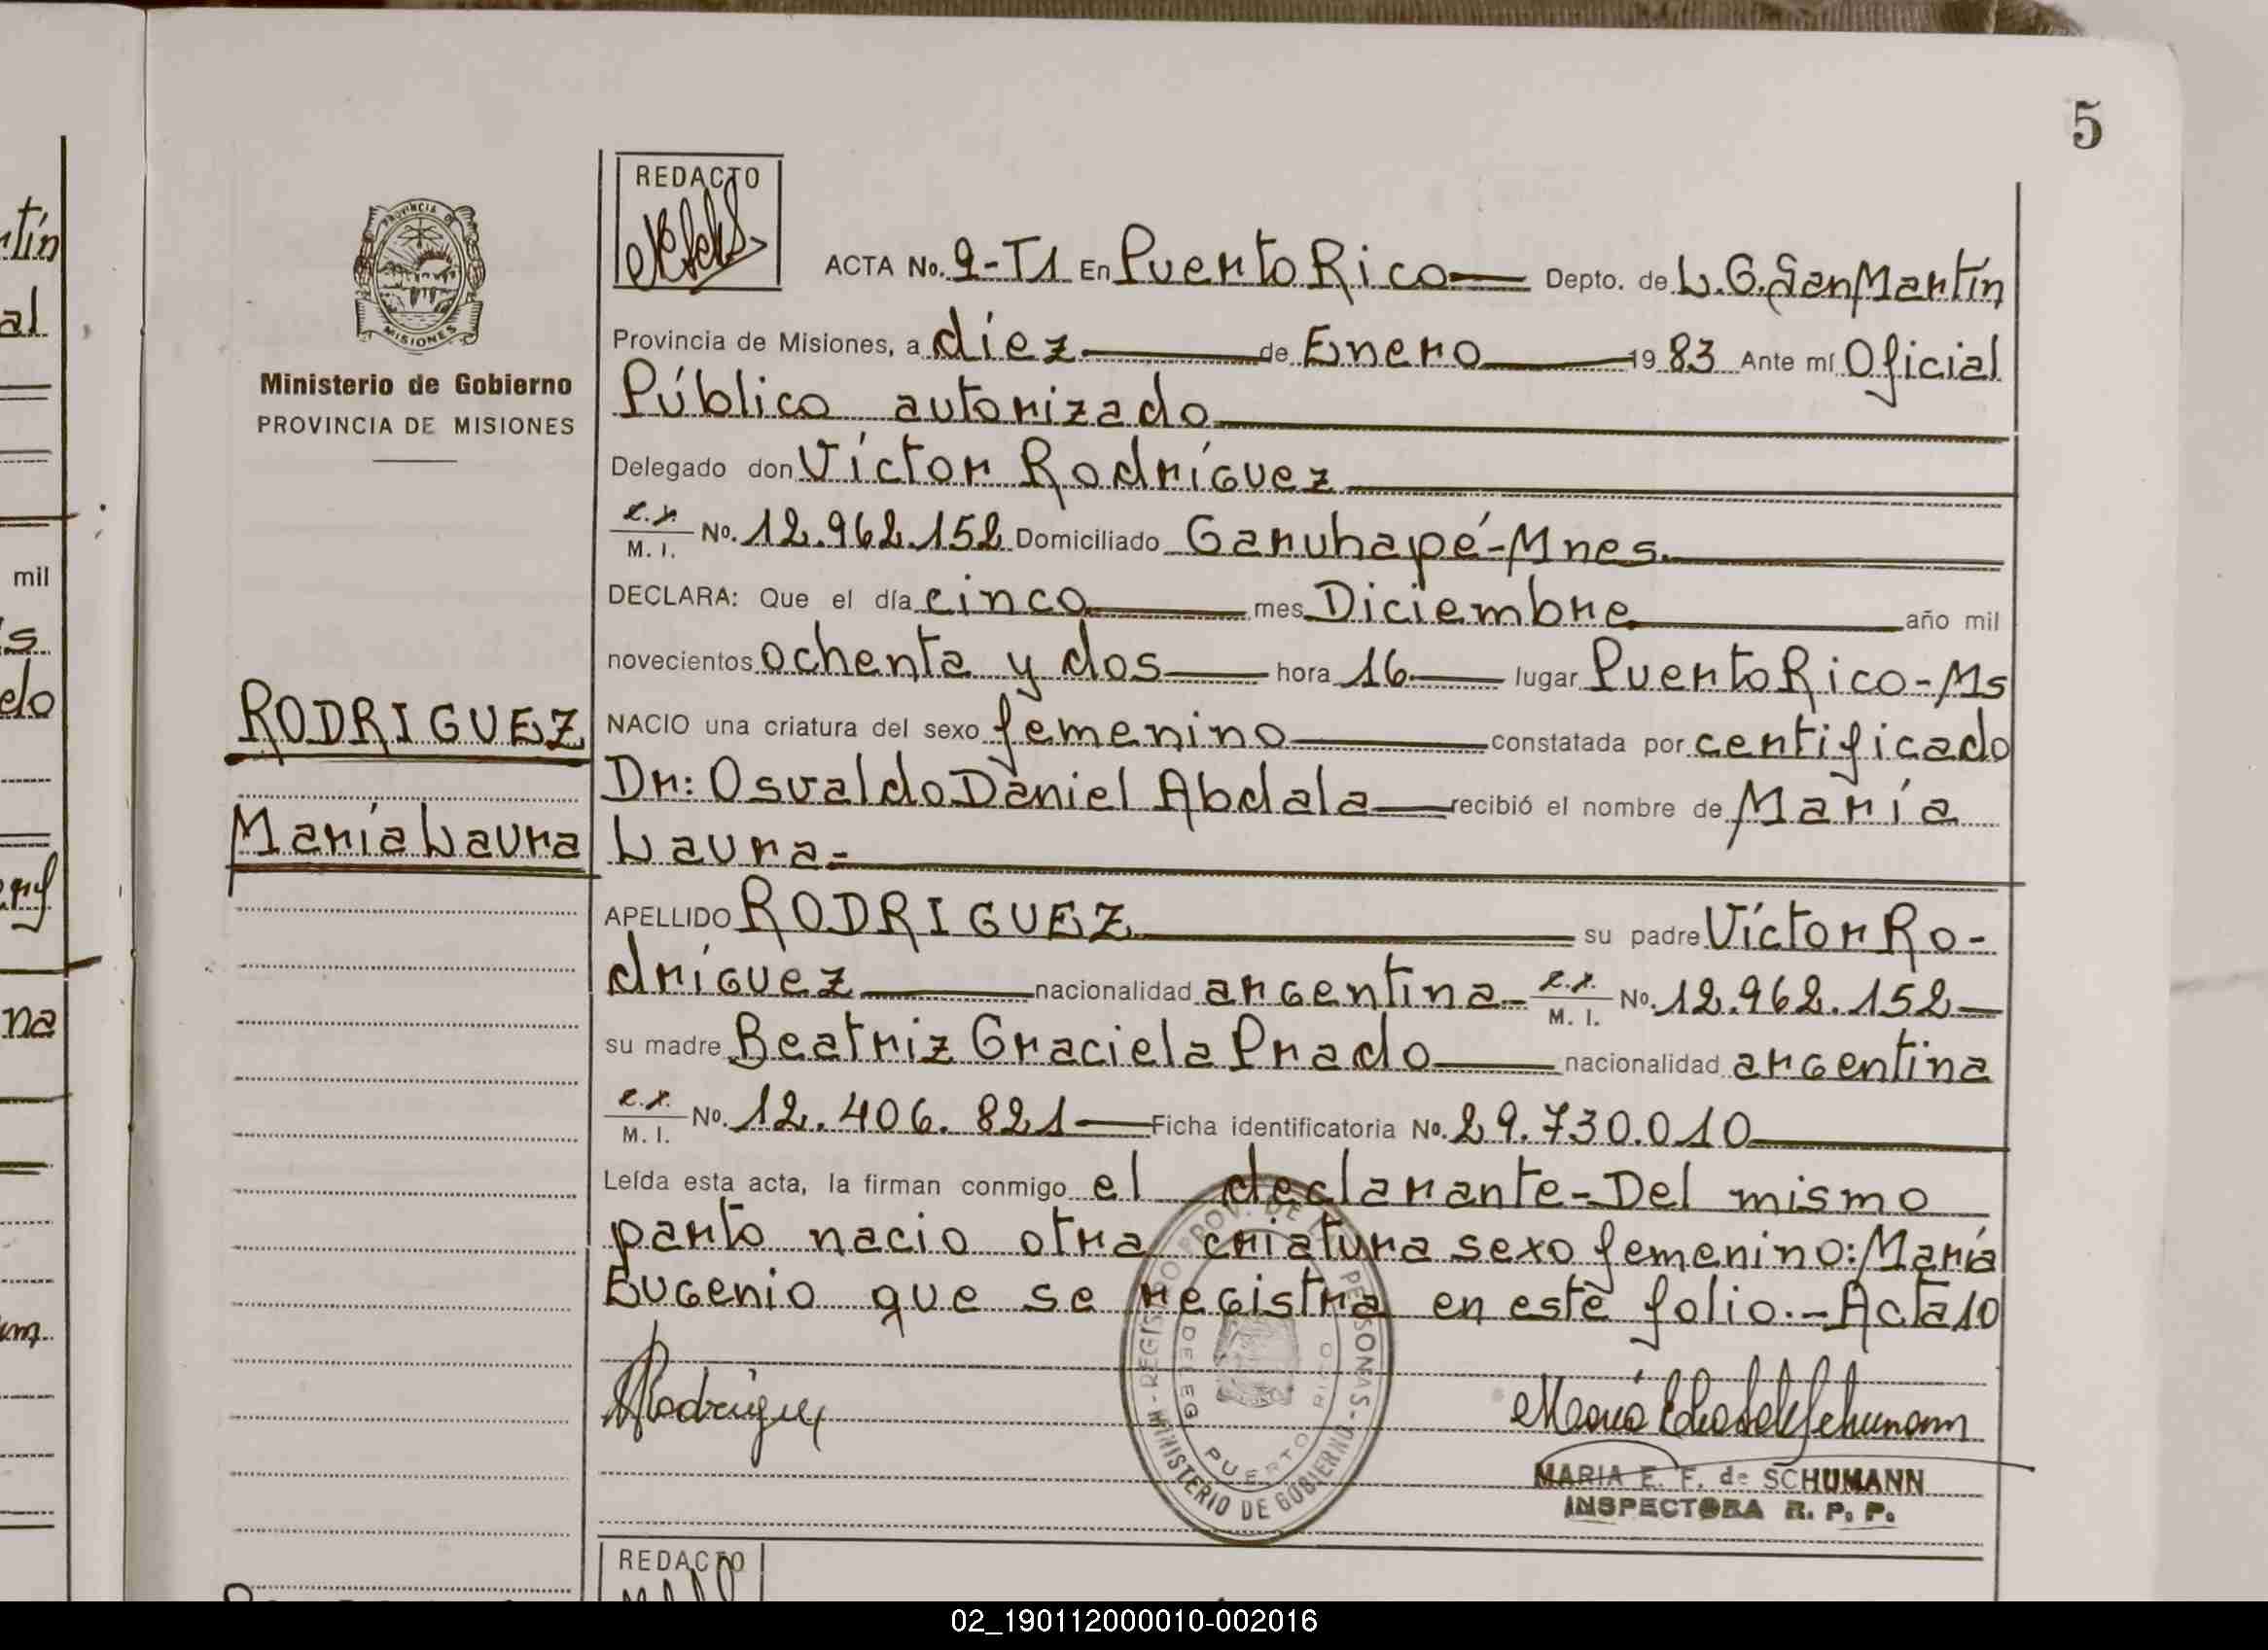 5
tín
al
mil
s
do
na
PROVINCIA DE
MISIONES
Ministerio de Gobierno
PROVINCIA DE MISIONES
RODRIGUEZ
María Laura
REDACTO
ACTA No. 9-T1 En Puerto Rico Depto. de L.G.San Martín
Provincia de Misiones, a diez de Enero 19 83 Ante mí Oficial
Público autorizado
Delegado don Víctor Rodríguez
M. I. No. 12.962.152 Domiciliado Garuhapé-Mnes.
DECLARA: Que el día cinco mes Diciembre año mil
novecientos ochenta y dos hora 16 lugar Puerto Rico-Ms
NACIO una criatura del sexo femenino constatada por certificado
Dr: Osvaldo Daniel Abdala recibió el nombre de María
Laura-
APELLIDO RODRIGUEZ su padre Víctor Ro-
dríguez nacionalidad argentina- M. I. No. 12.962.152
su madre Beatriz Graciela Prado nacionalidad argentina
M. I. No. 12.406.821 Ficha identificatoria No. 29.730.010
Leída esta acta, la firman conmigo el declarante-Del mismo
parto nacio otra criatura sexo femenino: María
Eugenio que se registra en este folio.-Acta 10
Rodríguez
MINISTERIO DE GOBIERNO
PUERTO RICO
MARIA E. F. de SCHUMANN
INSPECTORA R. P. P.
REDACTO
02_190112000010-002016